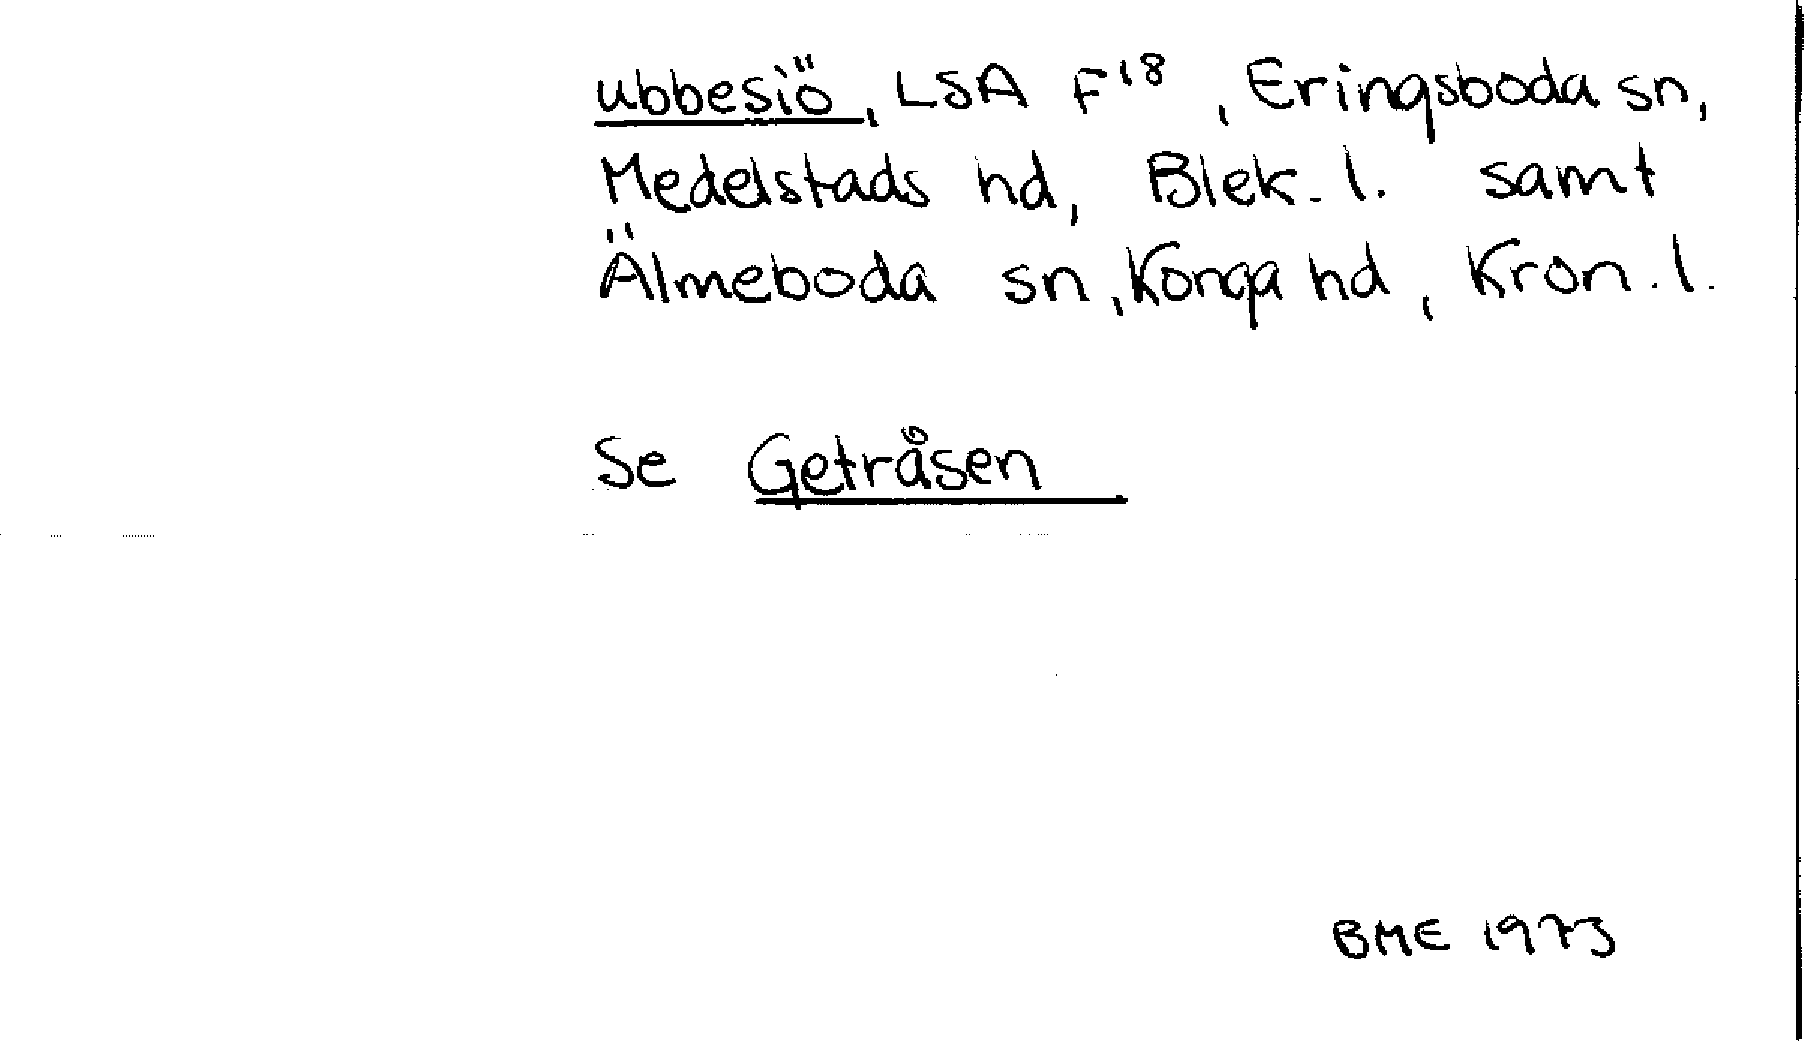 ubbesiö, LSA F18, Eringsboda sn,
Medelstads hd, Blek. l. samt
Älmeboda sn, Konga hd, Kron. l.
Se Getråsen
BME 1973